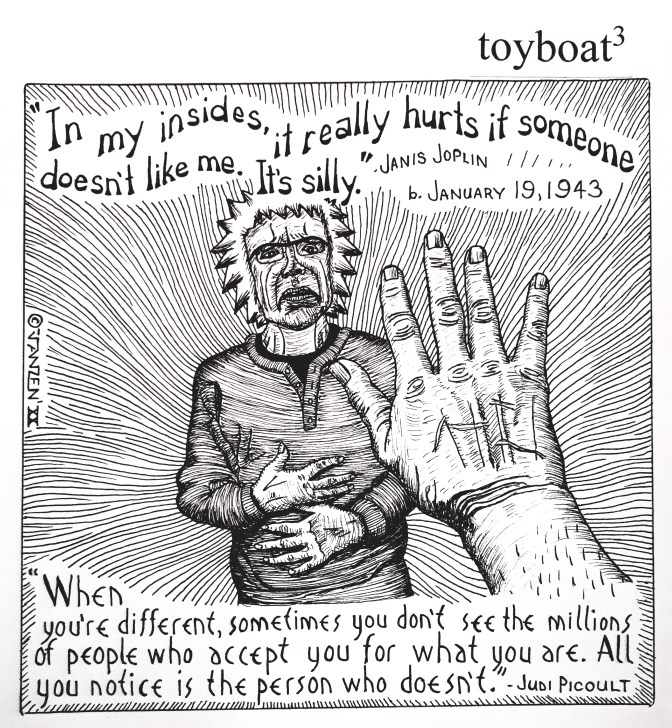 toyboat³
"In my insides, it really hurts if someone
doesn't like me. It's silly." -Janis Joplin
b. January 19, 1943
"When
you're different, sometimes you don't see the millions
of people who accept you for what you are. All
you notice is the person who doesn't." -Judi Picoult